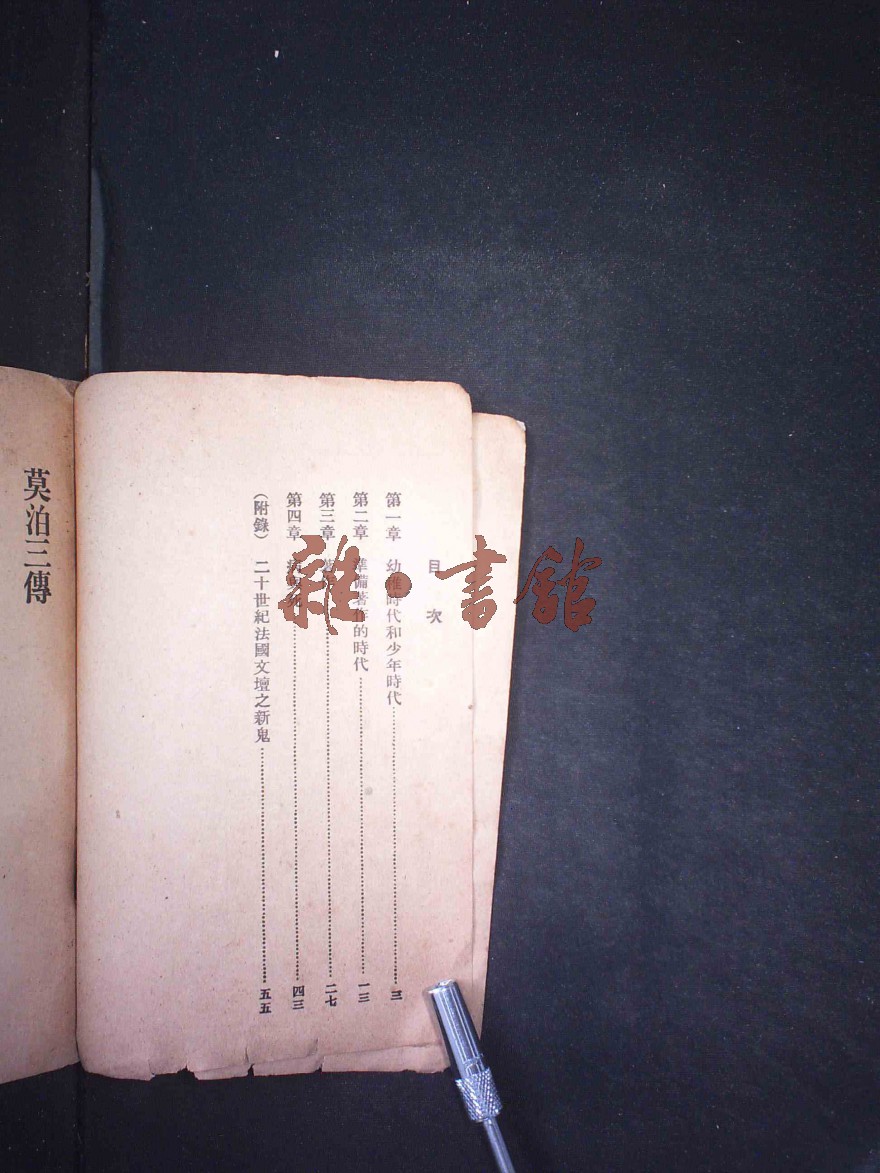 目次
第一章 幼稚時代和少年時代……三
第二章 準備著作的時代……一三
第三章……二七
第四章……四三
(附錄) 二十世紀法國文壇之新鬼……五五
莫泊三傳
雜·書館